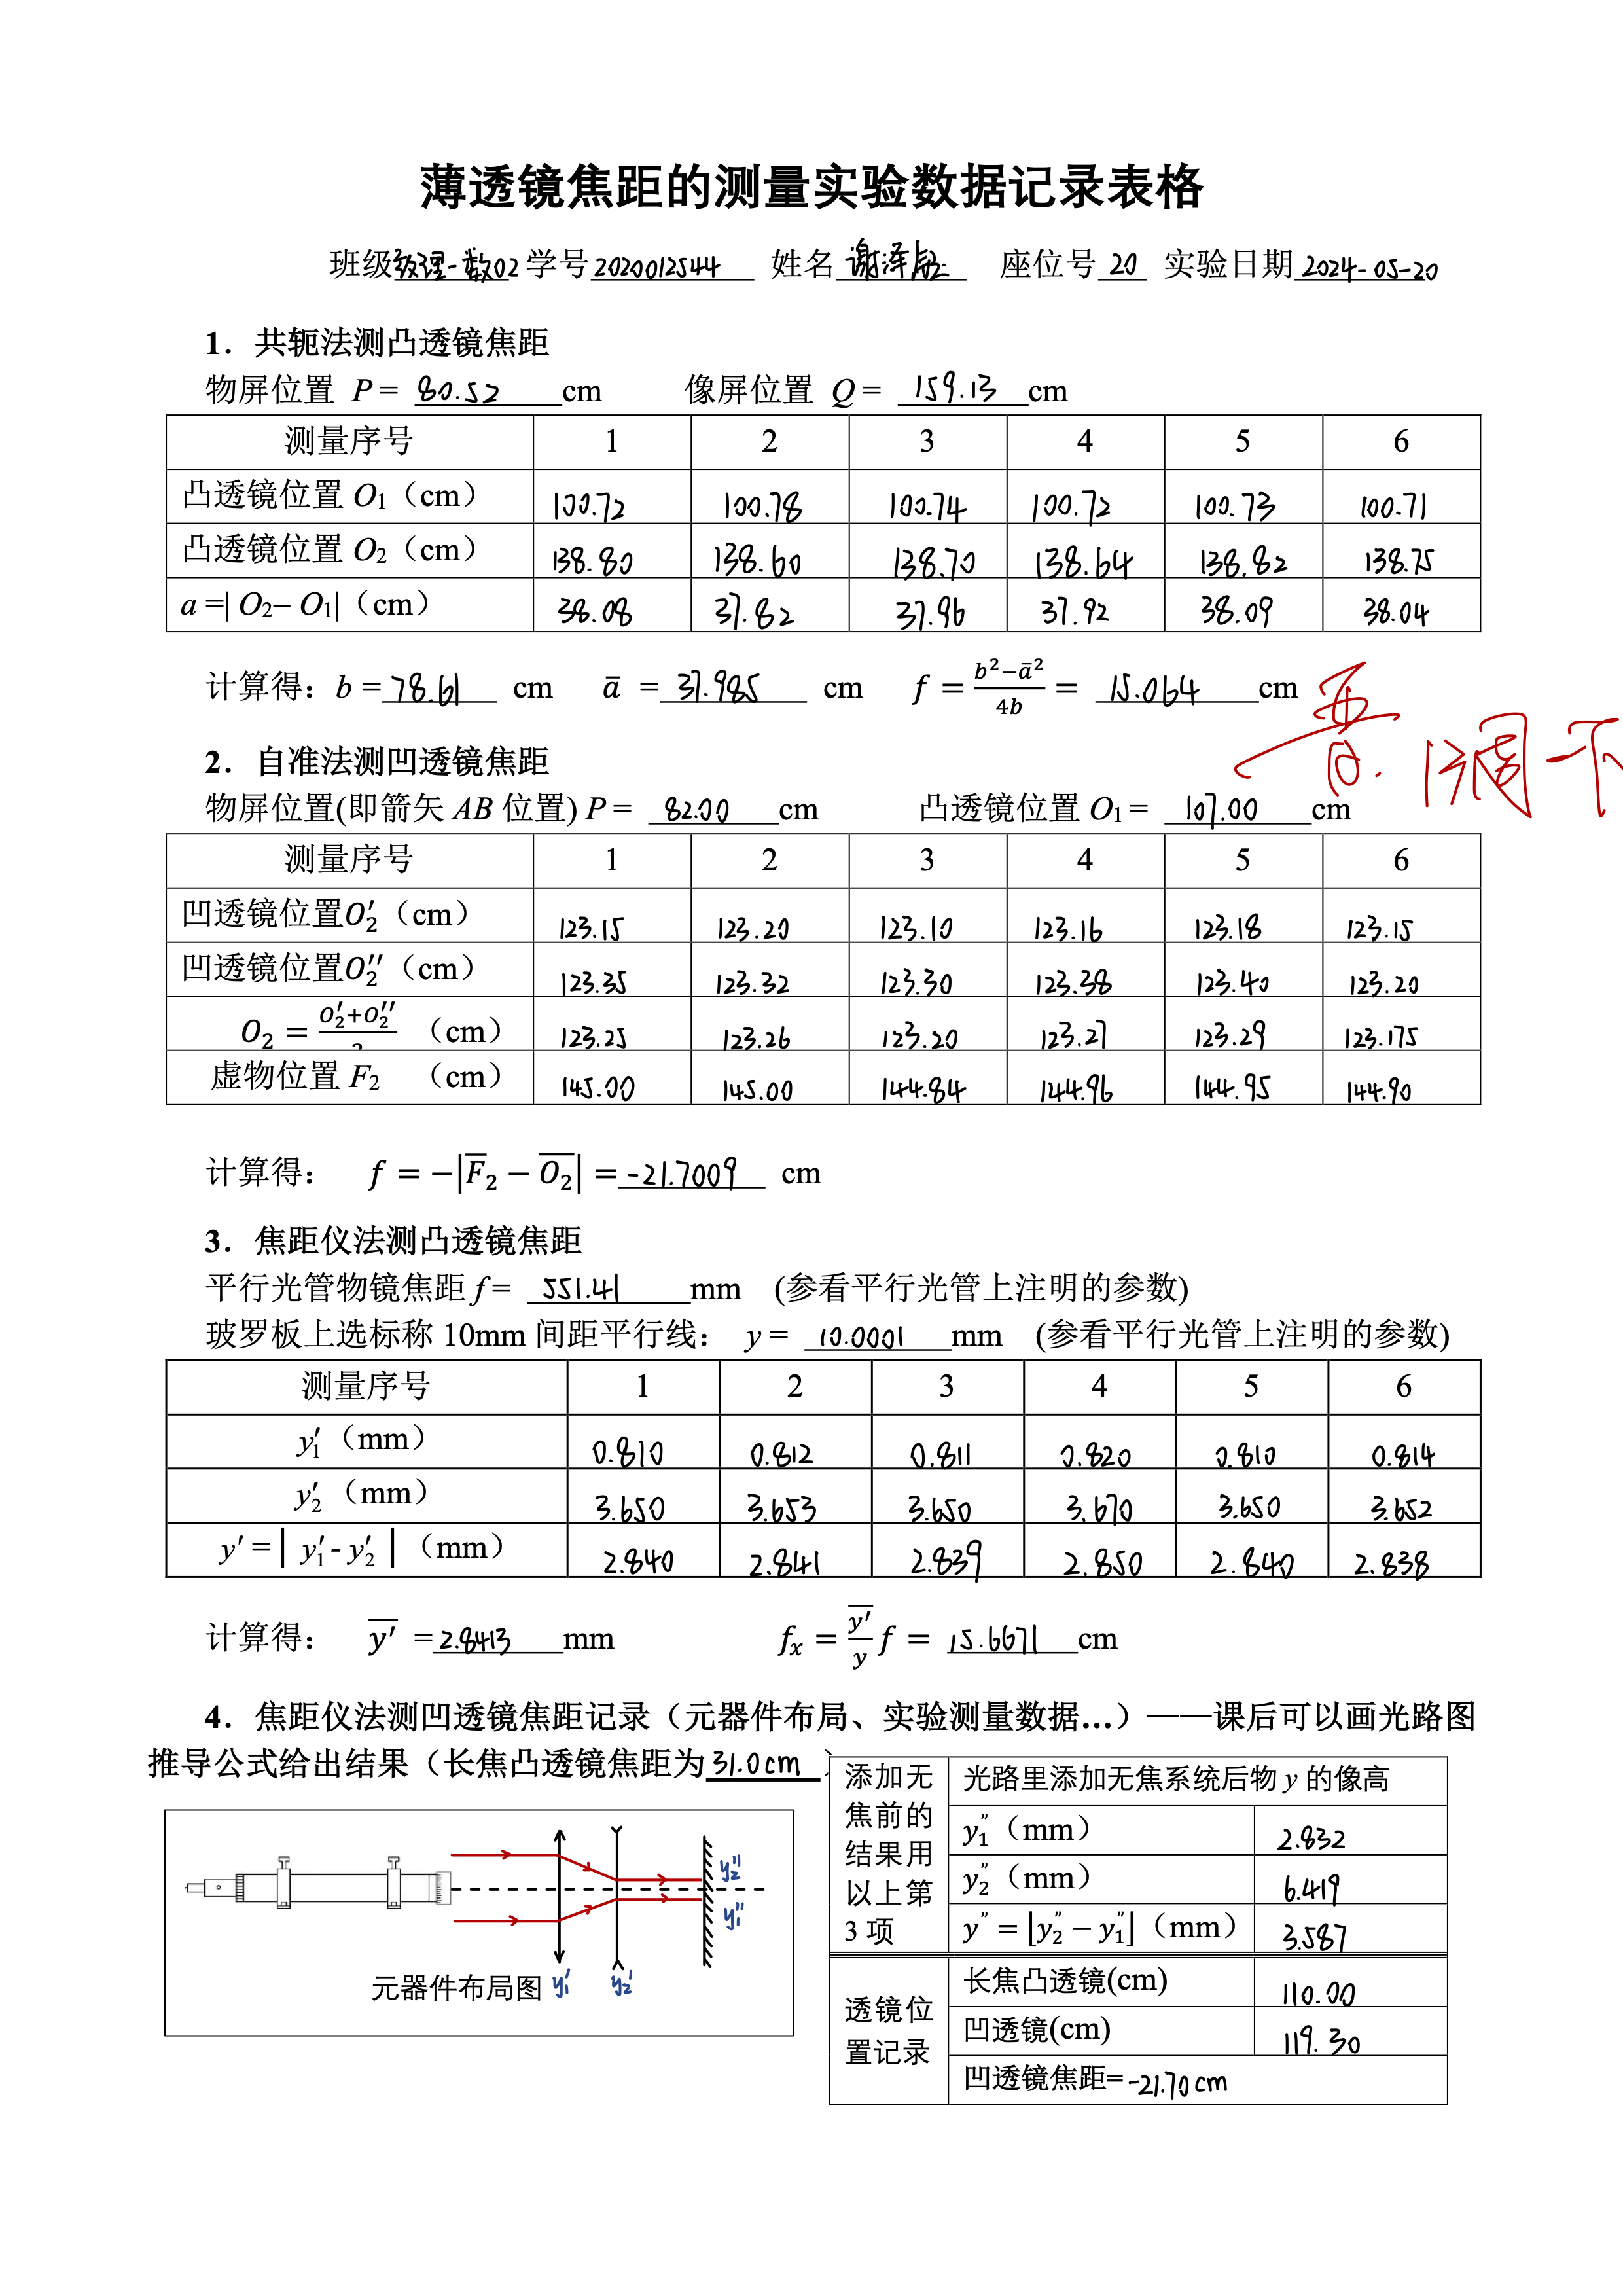 薄透镜焦距的测量实验数据记录表格
班级 数理-数02 学号 2020012544 姓名 谢泽 座位号 20 实验日期 2024-05-20
1. 共轭法测凸透镜焦距
物屏位置 P = 80.52 cm 像屏位置 Q = 159.13 cm
测量序号 1 2 3 4 5 6
凸透镜位置 O1（cm） 100.72 100.78 100.74 100.72 100.73 100.71
凸透镜位置 O2（cm） 138.80 138.60 138.70 138.64 138.82 138.75
a =| O2– O1|（cm） 38.08 37.82 37.96 37.92 38.09 38.04
计算得：b = 78.61 cm ā = 37.985 cm f = (b²−ā²)/4b = 15.064 cm
13周一下
2. 自准法测凹透镜焦距
物屏位置(即箭矢 AB 位置) P = 82.00 cm 凸透镜位置 O1 = 107.00 cm
测量序号 1 2 3 4 5 6
凹透镜位置O₂′（cm） 123.15 123.20 123.10 123.16 123.18 123.15
凹透镜位置O₂″（cm） 123.35 123.32 123.30 123.38 123.40 123.20
O₂ = (O₂′+O₂″)/2 （cm） 123.25 123.26 123.20 123.27 123.29 123.175
虚物位置 F2 （cm） 145.00 145.00 144.84 144.96 144.95 144.90
计算得： f = −|F̅₂ − O̅₂| = -21.7009 cm
3. 焦距仪法测凸透镜焦距
平行光管物镜焦距 f = 551.41 mm (参看平行光管上注明的参数)
玻罗板上选标称 10mm 间距平行线： y = 10.0001 mm (参看平行光管上注明的参数)
测量序号 1 2 3 4 5 6
y₁′（mm） 0.810 0.812 0.811 0.820 0.810 0.814
y₂′（mm） 3.650 3.653 3.650 3.670 3.650 3.652
y′ = | y₁′ - y₂′ |（mm） 2.840 2.841 2.839 2.850 2.840 2.838
计算得： y̅′ = 2.8413 mm fₓ = (y̅′/y) f = 15.6671 cm
4. 焦距仪法测凹透镜焦距记录（元器件布局、实验测量数据…）——课后可以画光路图
推导公式给出结果（长焦凸透镜焦距为 31.0cm ）
y₂″
y₁″
元器件布局图 y₁′ y₂′
添加无焦前的结果用以上第3项
光路里添加无焦系统后物 y 的像高
y₁”（mm） 2.832
y₂”（mm） 6.419
y” = |y₂” − y₁”|（mm） 3.587
透镜位置记录
长焦凸透镜(cm) 110.00
凹透镜(cm) 119.30
凹透镜焦距= -21.70cm